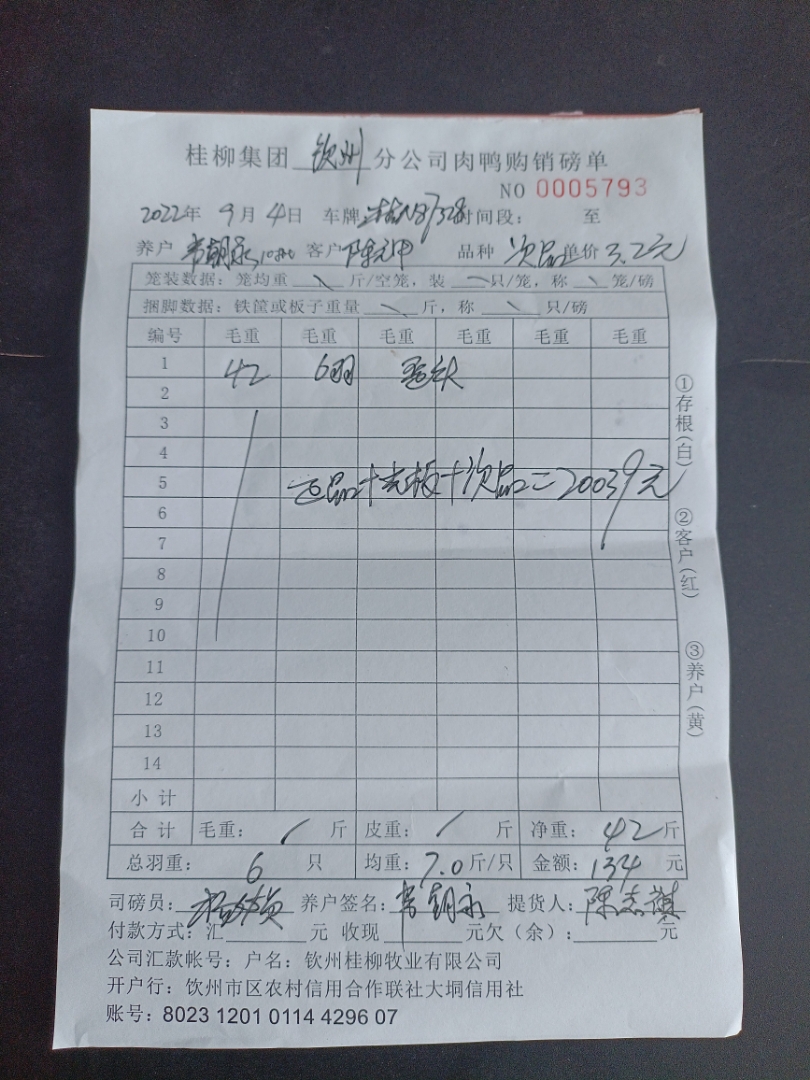 桂柳集团 钦州 分公司肉鸭购销磅单
NO 0005793
2022年 9月 4日 车牌: 时间段: 至
养户 常朝永 客户 陈元甲 品种 次品 单价 3.2元
笼装数据: 笼均重 \ 斤/空笼, 装 \ 只/笼, 称 \ 笼/磅
捆脚数据: 铁筐或板子重量 \ 斤, 称 \ 只/磅
编号 毛重 毛重 毛重 毛重 毛重 毛重
1 42 6羽
2
3
4
5 正品+光板+次品=20039元
6
7
8
9
10
11
12
13
14
小计
合计 毛重: / 斤 皮重: / 斤 净重: 42斤
总羽重: 6 只 均重: 7.0斤/只 金额: 134 元
司磅员: 养户签名: 常朝永 提货人: 陈志祺
付款方式: 汇 元 收现 元欠(余): 元
公司汇款帐号: 户名: 钦州桂柳牧业有限公司
开户行: 钦州市区农村信用合作联社大垌信用社
账号: 8023 1201 0114 4296 07
①存根(白)
②客户(红)
③养户(黄)